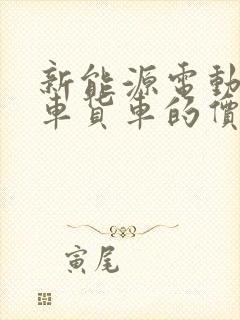 新能源電動
車貨車的價
寅尾